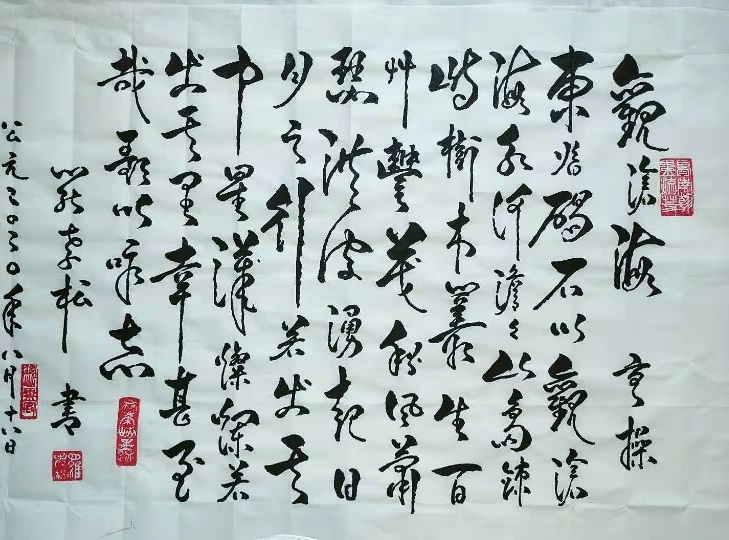 觀滄海 曹操
東临碣石以觀滄
海水何澹々山島竦
峙樹木叢生百
艸豐茂秋風蕭
瑟洪波湧起日
月之行若出其
中星漢燦爛若
出其里幸甚至
哉歌以咏志
松 書
公元二〇二〇年八月十八日